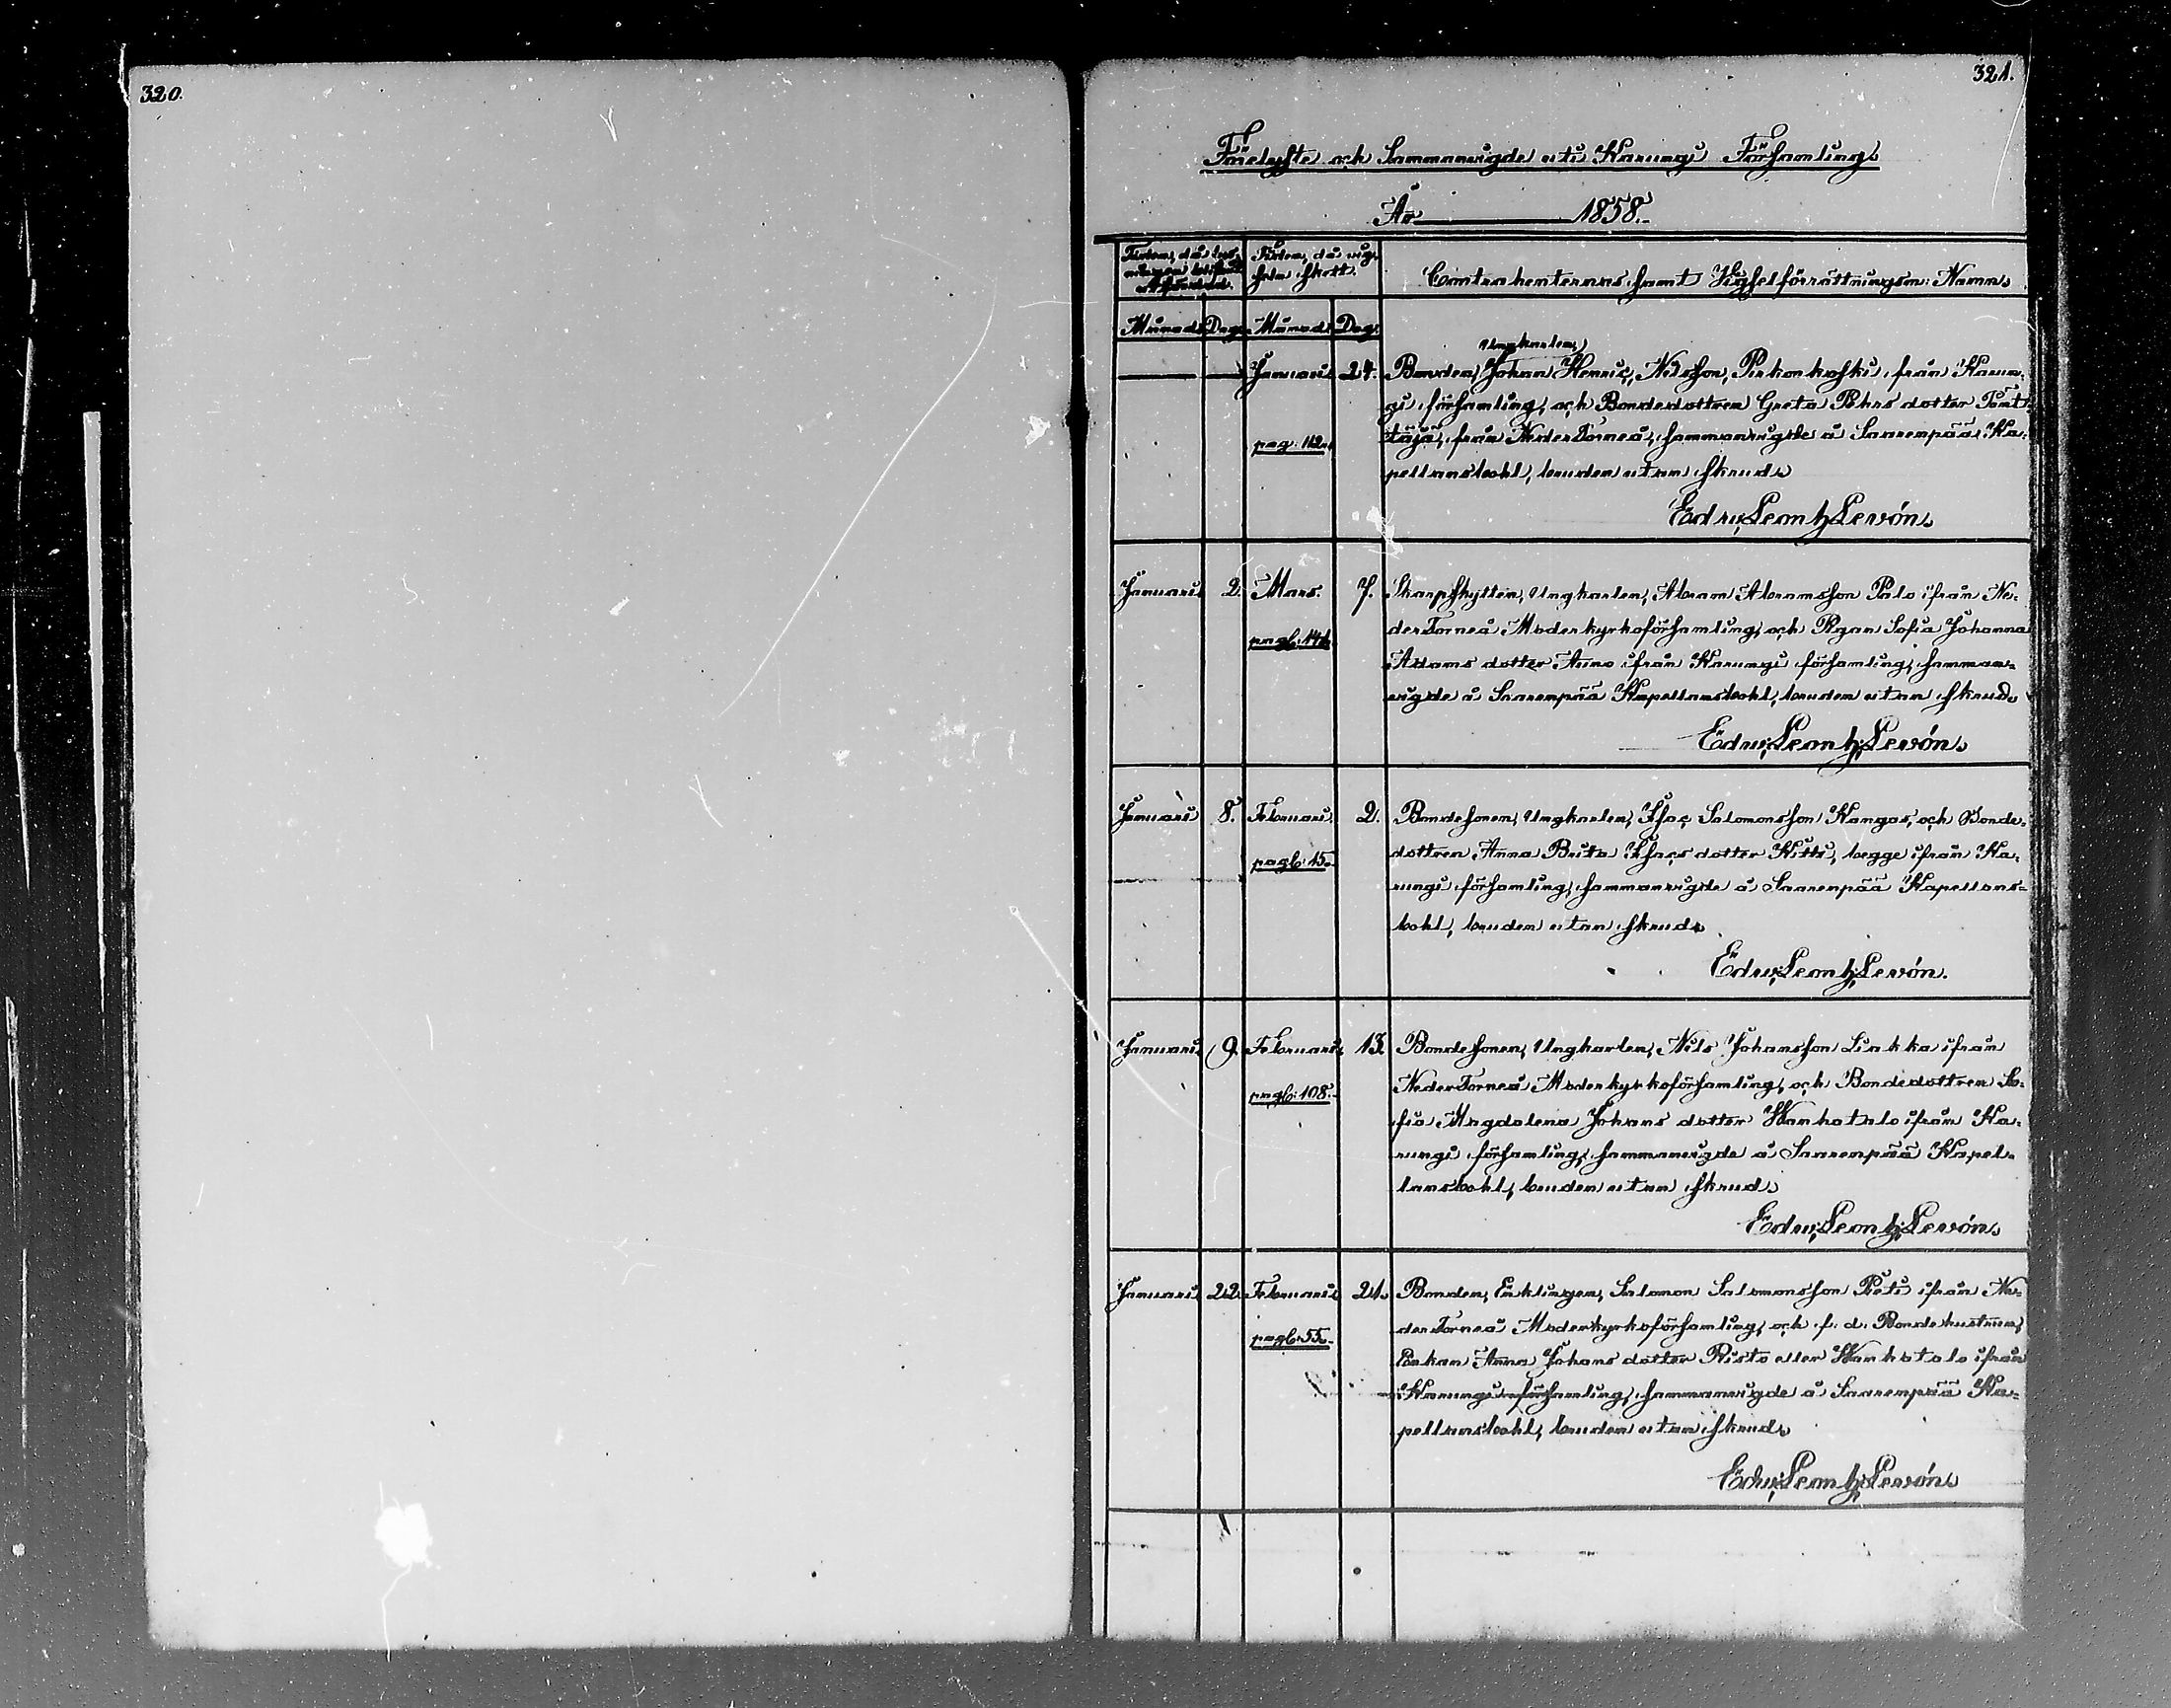 320.
321.
Förelyste och Sammanvigde uti Karungi Församling
År 1858.
Tiden, då lys-
Tiden, då vig-
seln skett.
Contrahenternas samt Vigselförrättningsm: Namn
Månad Dag. Månad Dag.
Ungkarlen,
Januari 24. Bonden, Johan Henric, Nilsson, Pirkonkoski, från Karun-
gi församling, och Bondedottren Greta Pehrs dotter
från Neder Torneå, sammanvigde å Saarenpää Ka-
pag. 112.
pellansbohl, bruden utan skrud.
Edv; Leon h; Levón.
Januari 2. Mars. 7. Skarpskytten, Ungkarlen, Abram Abramsson Palo ifrån Ne-
der Torneå Moderkyrkoförsamling, och Pigan Sofia Johanna
Adams dotter Auno ifrån Karungi församling, samman-
vigde å Saarenpää Kapellansbohl, bruden utan skrud.
Edv; Leon h; Levón.
Januari 8. Februari. 2. Bondesonen, Ungkarlen, Isac Salomonsson Kangas, och Bonde-
dottren Anna Brita Isacs dotter Kitti, begge ifrån Ka-
pag: 15.
rungi församling, sammanvigde å Saarenpää Kapellans-
bohl, bruden utan skrud.
Edv; Leon h; Levón.
Januari 9. Februari 13. Bondesonen, Ungkarlen, Nils Johansson Liakka ifrån
Neder Torneå Moderkyrkoförsamling, och Bondedottren So-
pag: 108.
fia Magdalena Johans dotter Wanhatalo ifrån Ka-
rungi församling, sammanvigde å Saarenpää Kapel-
lansbohl, bruden utan skrud.
Edv; Leon h; Levón.
Januari 22. Februari 21. Bonden, Enklingen, Salomon Salomonsson Pieti ifrån Ne-
der Torneå Moderkyrkoförsamling, och f. d. Bondehustrun,
pag: 55.
Enkan Anna Johans dotter Risto eller Wanhatalo ifrån
Karungi församling, sammanvigde å Saarenpää Ka-
pellansbohl, bruden utan skrud.
Edv; Leon h; Levón.